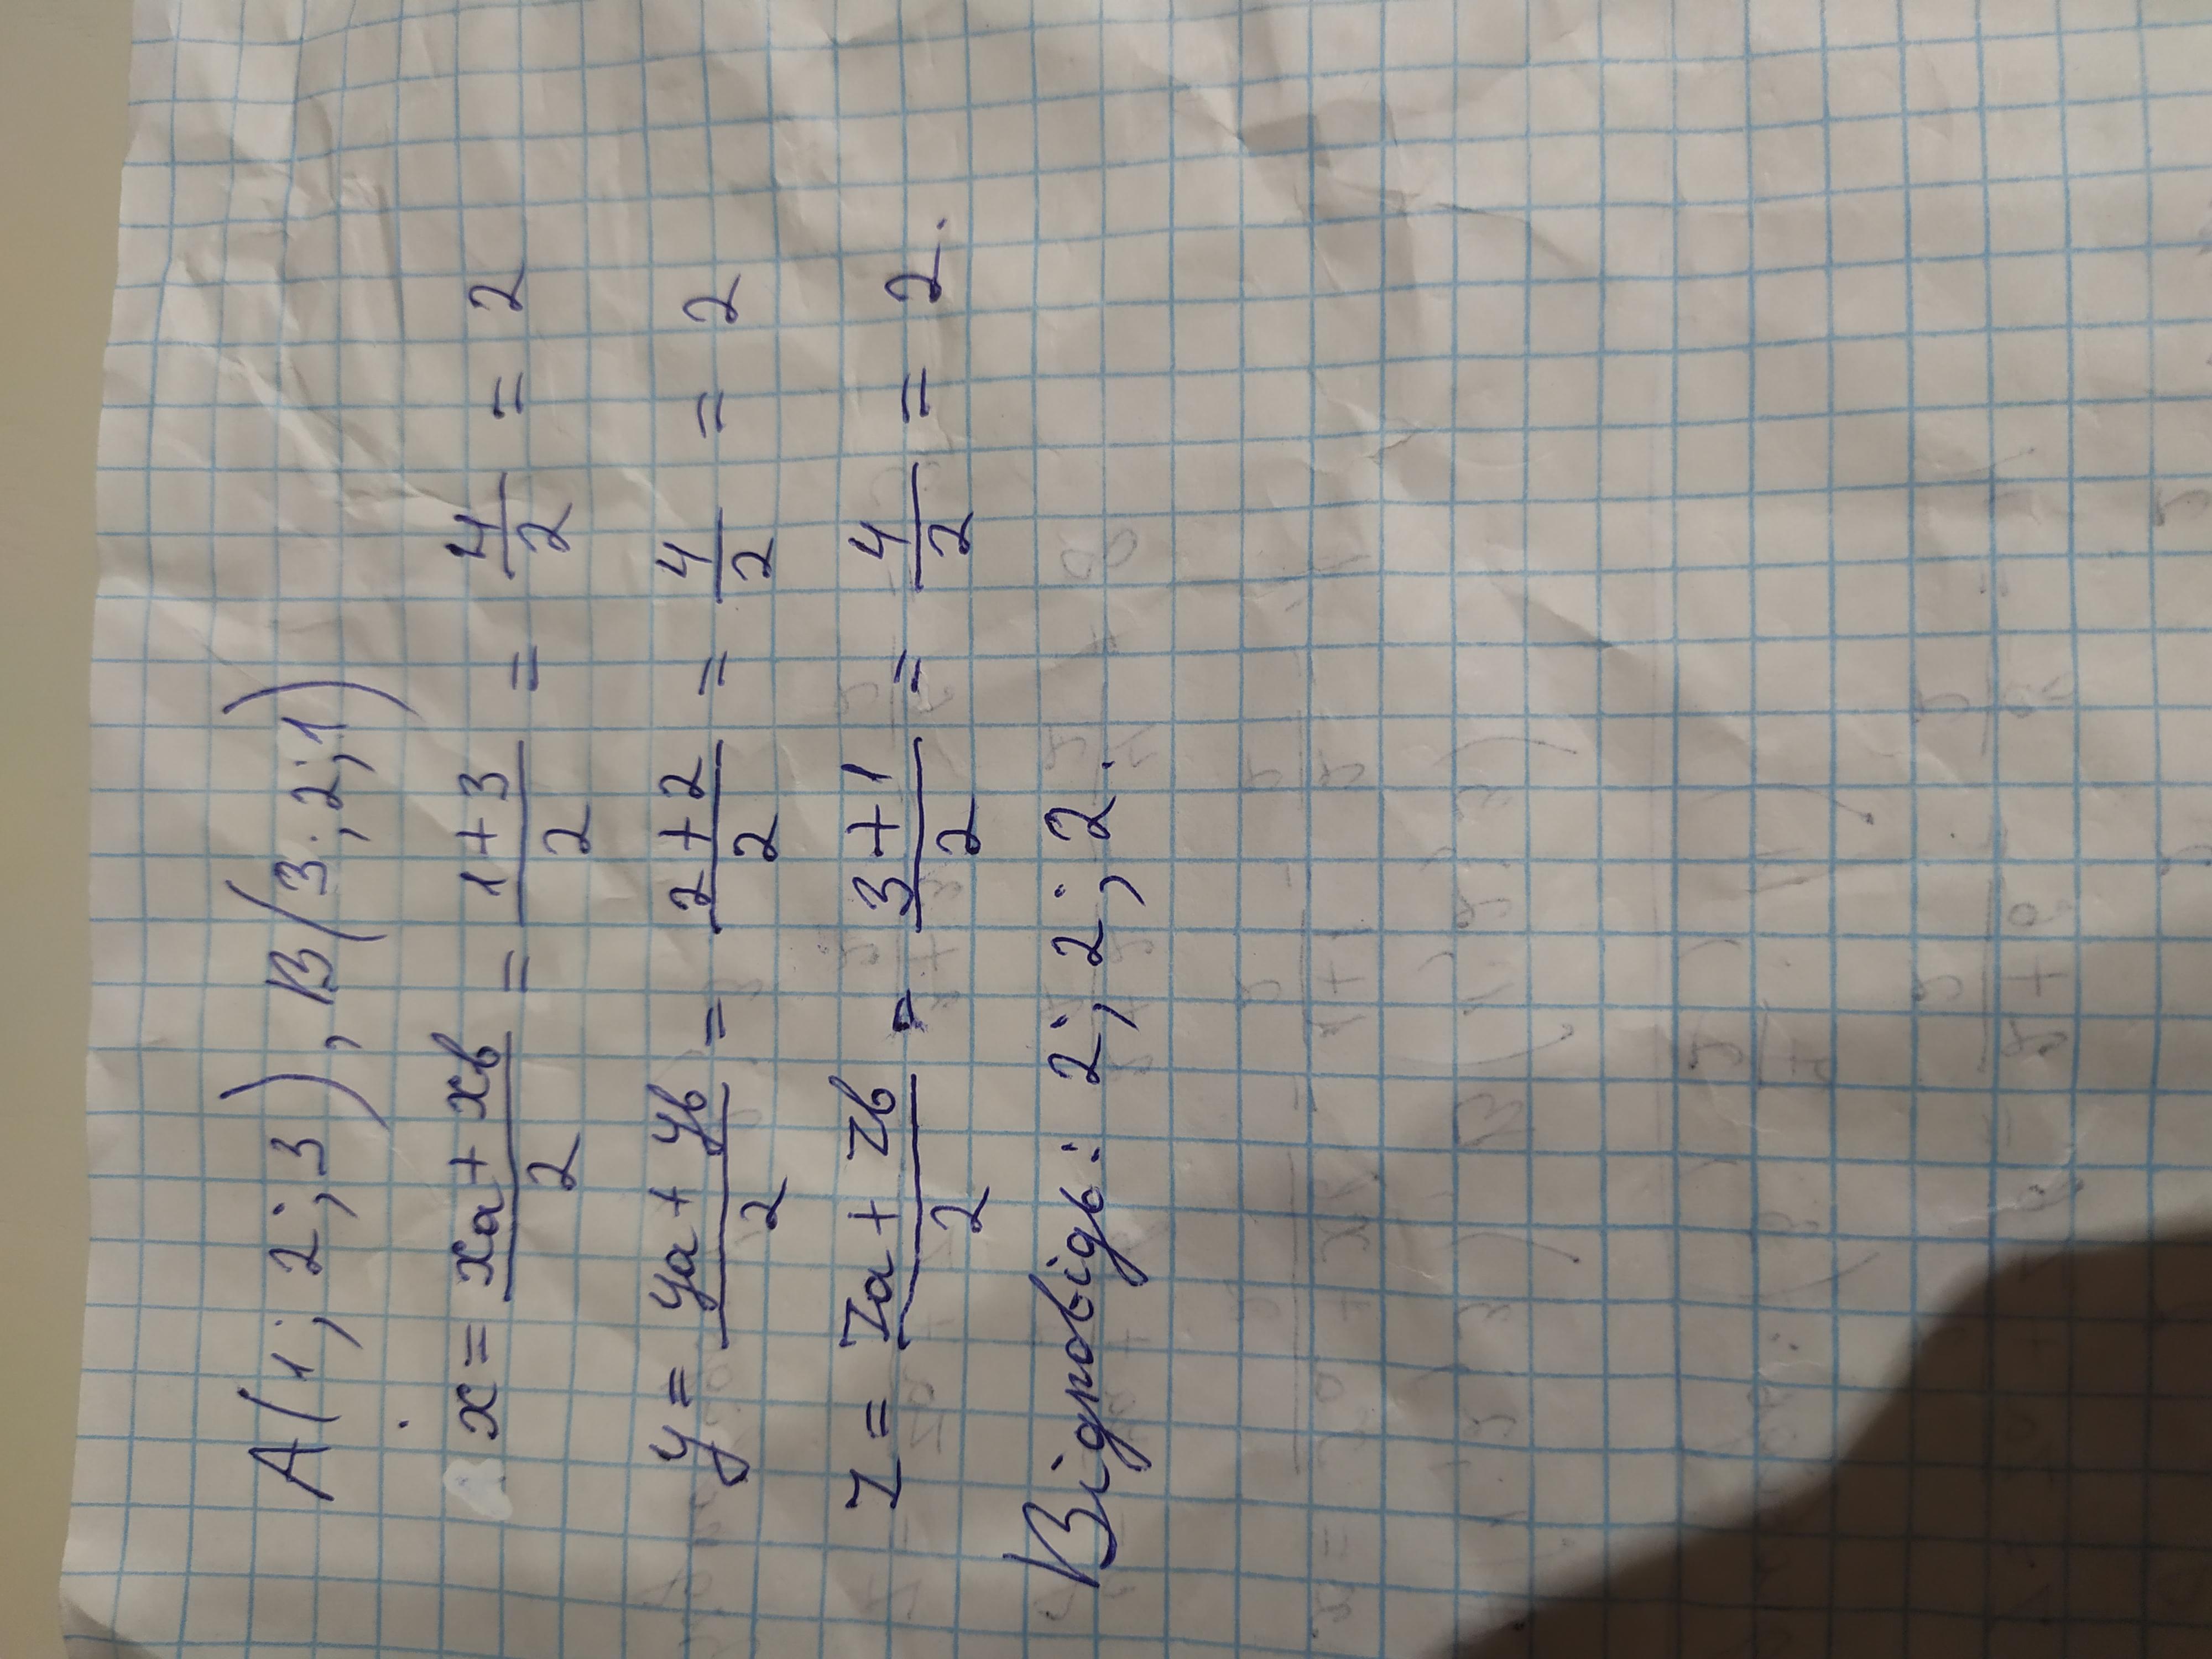 A(1; 2; 3), B(3; 2; 1)
x = xa + xb / 2 = 1+3 / 2 = 4/2 = 2
y = ya + yb / 2 = 2+2 / 2 = 4/2 = 2
z = za + zb / 2 = 3+1 / 2 = 4/2 = 2.
Відповідь: 2; 2; 2.